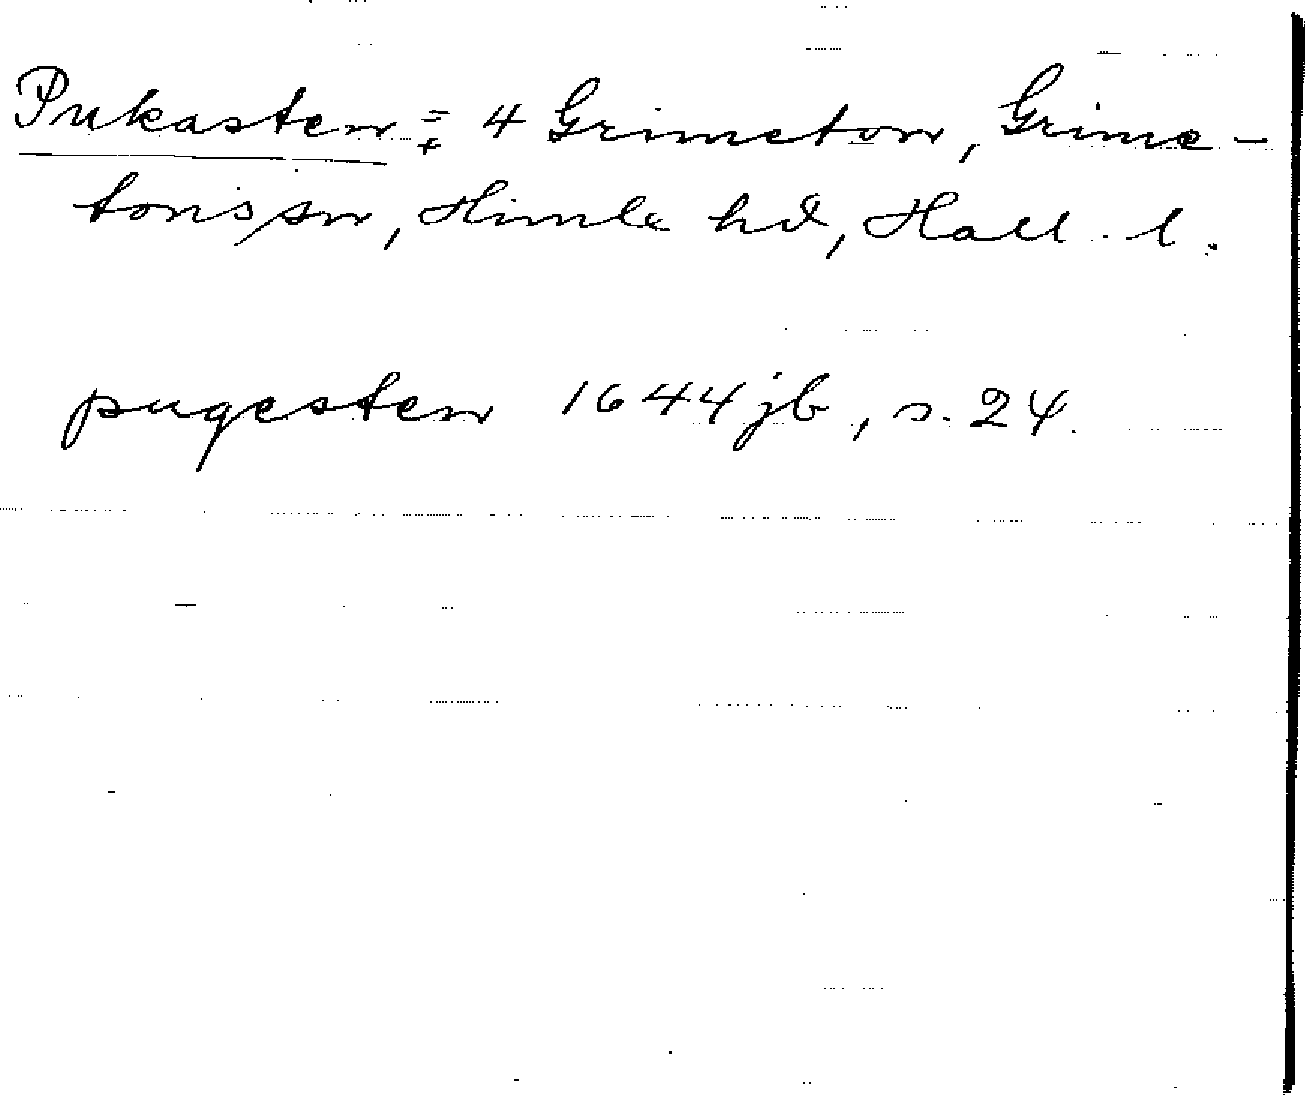 Pukasten = 4 Grimeton, Grime-
tons sn, Himle hd, Hall. l.
pugesten 1644 jb, s. 24.